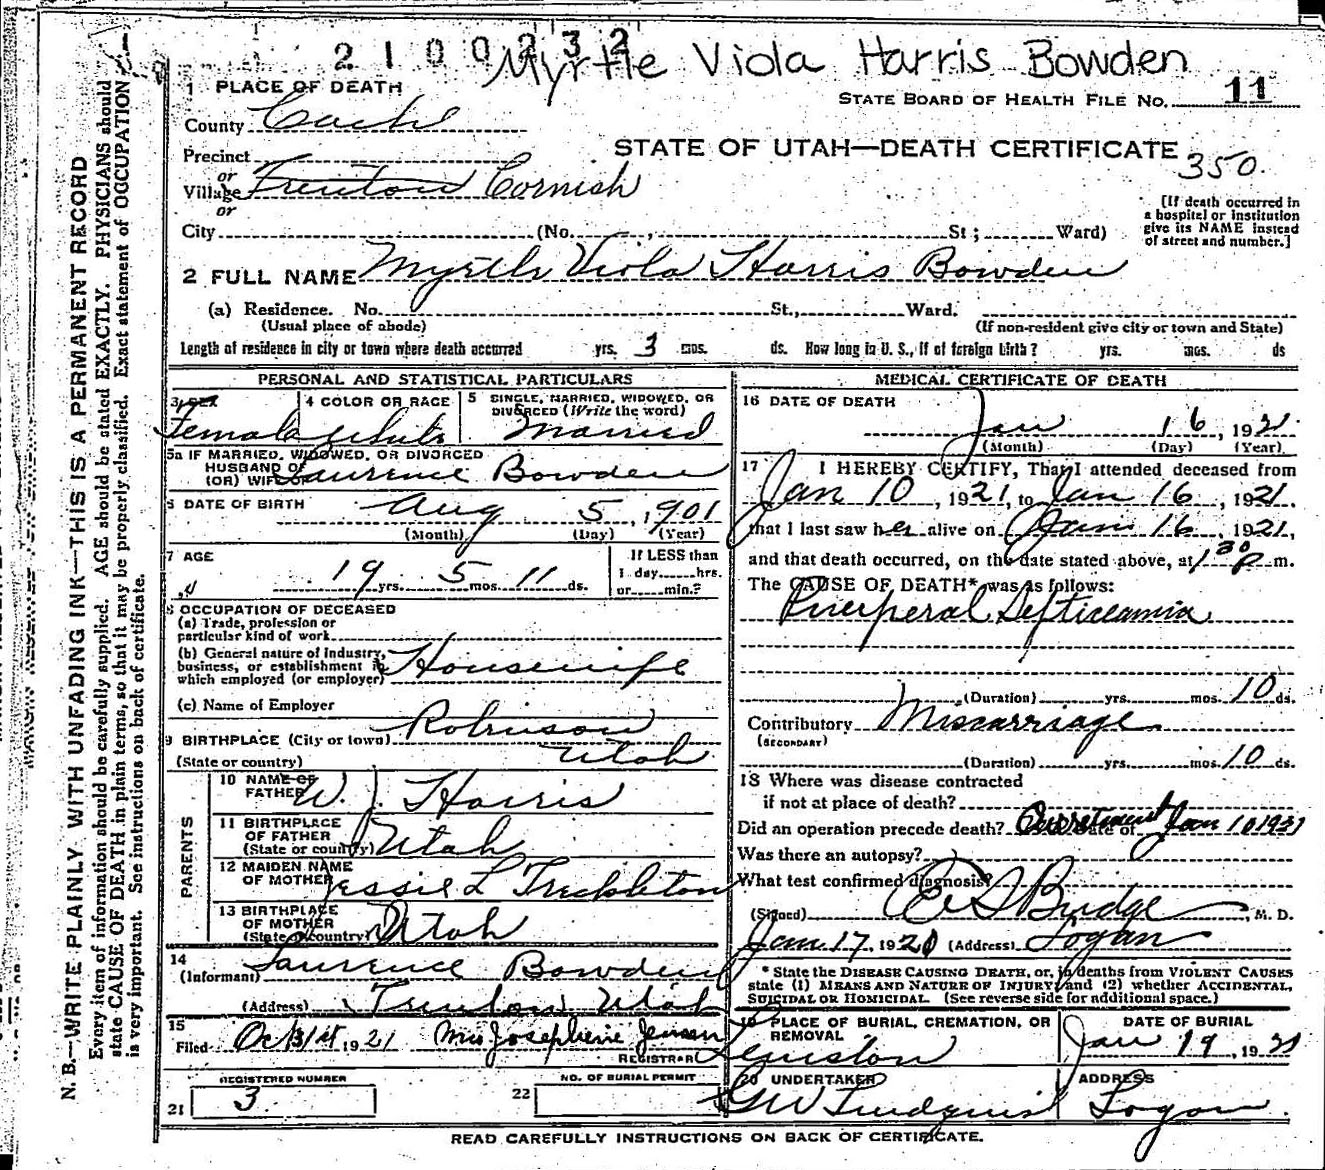 2100232
Myrtle Viola Harris Bowden
1 PLACE OF DEATH
STATE BOARD OF HEALTH FILE NO. 11
County Cache
STATE OF UTAH—DEATH CERTIFICATE 350.
Precinct
or
Village Trenton Cornish
or
[If death occurred in
a hospital or institution
give its NAME instead
of street and number.]
City (No. , St ; Ward)
2 FULL NAME Myrtle Viola Harris Bowden
(a) Residence. No. St., Ward.
(Usual place of abode) (If non-resident give city or town and State)
Length of residence in city or town where death occurred yrs. 3 mos. ds. How long in U. S., if of foreign birth? yrs. mos. ds
PERSONAL AND STATISTICAL PARTICULARS
3 SEX
Female
4 COLOR OR RACE
White
5 SINGLE, MARRIED, WIDOWED, OR
DIVORCED (Write the word)
Married
5a IF MARRIED, WIDOWED, OR DIVORCED
HUSBAND OF
(OR) WIFE OF Laurence Bowden
6 DATE OF BIRTH Aug 5, 1901
(Month) (Day) (Year)
7 AGE
19 yrs. 5 mos. 11 ds.
If LESS than
1 day hrs.
or min.?
8 OCCUPATION OF DECEASED
(a) Trade, profession or
particular kind of work
(b) General nature of Industry,
business, or establishment in
which employed (or employer) Housewife
(c) Name of Employer
9 BIRTHPLACE (City or town) Robinson
(State or country) Utah
PARENTS
10 NAME OF
FATHER W. J. Harris
11 BIRTHPLACE
OF FATHER
(State or country) Utah
12 MAIDEN NAME
OF MOTHER Jessie L
13 BIRTHPLACE
OF MOTHER
(State or country) Utah
14
(Informant) Laurence Bowden
(Address) Trenton Utah
15
Filed Oct 31st 1921 Mrs Josephine Jensen
REGISTRAR
REGISTERED NUMBER
21 3
NO. OF BURIAL PERMIT
22
MEDICAL CERTIFICATE OF DEATH
16 DATE OF DEATH
Jan 16, 1921
(Month) (Day) (Year)
17 I HEREBY CERTIFY, That I attended deceased from
Jan 10, 1921, to Jan 16, 1921.
that I last saw her alive on Jan 16, 1921,
and that death occurred, on the date stated above, at 1 30 P m.
The CAUSE OF DEATH* was as follows:
Puerperal Septicaemia
(Duration) yrs. mos. 10 ds.
Contributory Miscarriage
(SECONDARY)
(Duration) yrs. mos. 10 ds.
18 Where was disease contracted
if not at place of death?
Did an operation precede death? Curetment Date of Jan 10 1921
Was there an autopsy?
What test confirmed diagnosis?
(Signed) Budge, M. D.
Jan. 17, 1921 (Address) Logan
* State the DISEASE CAUSING DEATH, or, in deaths from VIOLENT CAUSES
state (1) MEANS AND NATURE OF INJURY, and (2) whether ACCIDENTAL,
SUICIDAL OR HOMICIDAL. (See reverse side for additional space.)
19 PLACE OF BURIAL, CREMATION, OR
REMOVAL
Lewiston
DATE OF BURIAL
Jan 19, 1921
20 UNDERTAKER
GW Lindquist
ADDRESS
Logan.
READ CAREFULLY INSTRUCTIONS ON BACK OF CERTIFICATE.
N. B.—WRITE PLAINLY WITH UNFADING INK—THIS IS A PERMANENT RECORD
Every item of information should be carefully supplied. AGE should be stated EXACTLY. PHYSICIANS should
state CAUSE OF DEATH in plain terms, so that it may be properly classified. Exact statement of OCCUPATION
is very important. See instructions on back of certificate.